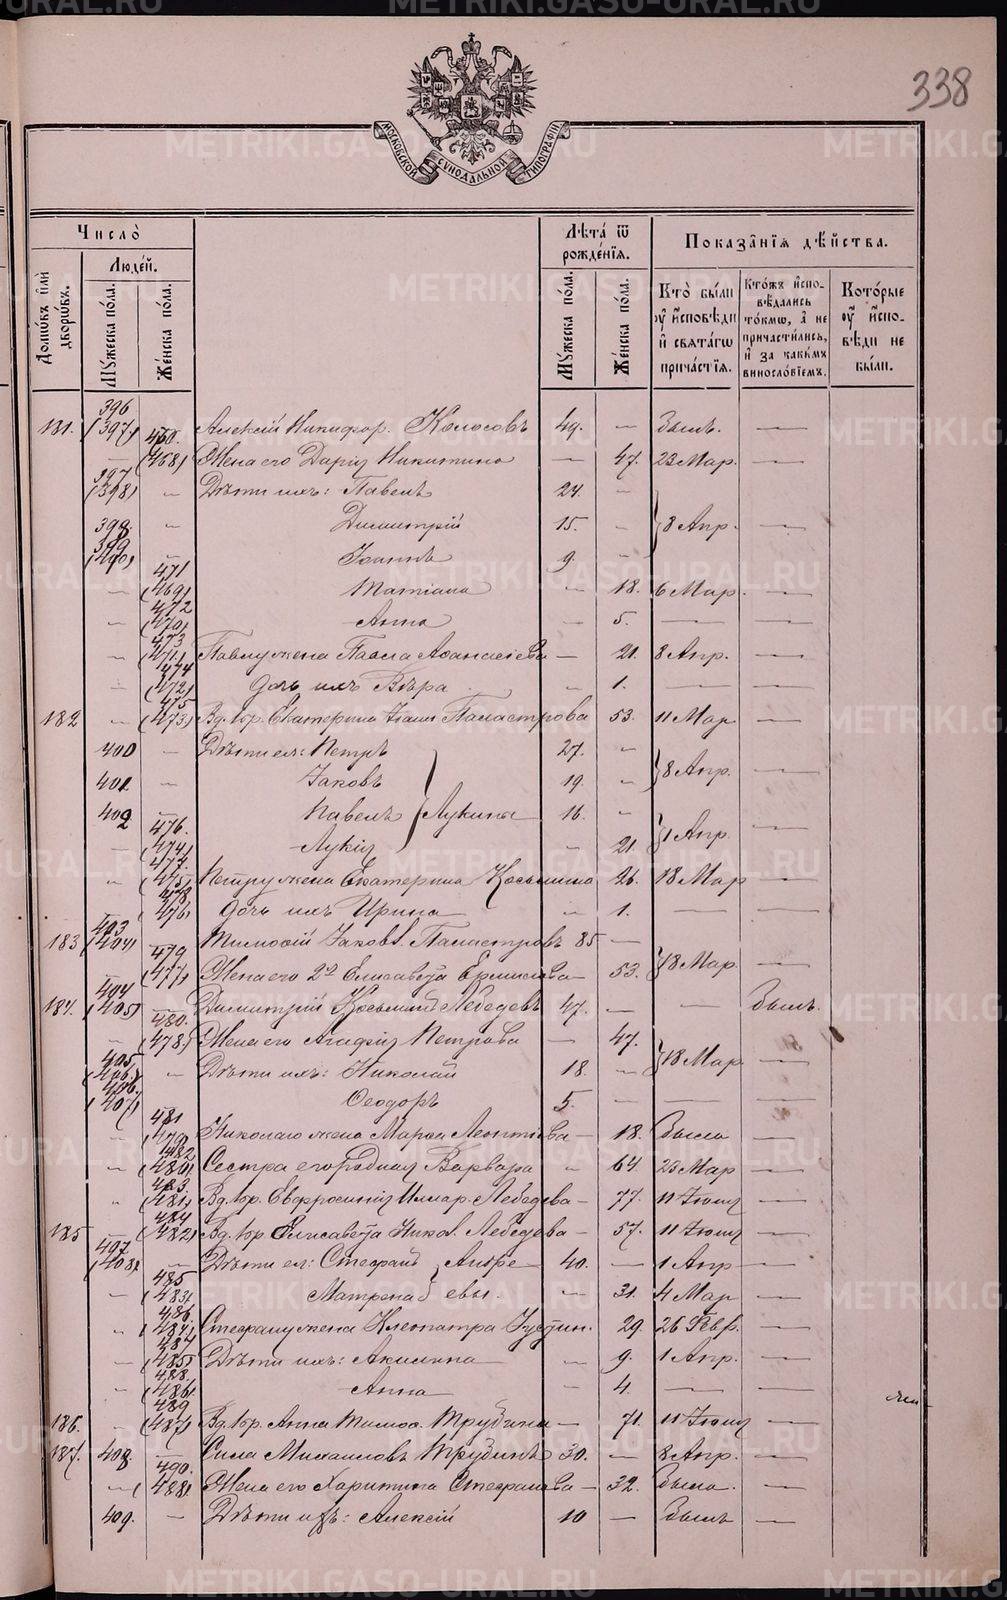 METRIKI.GASO-URAL.RU
338
МОСКОВСКОЙ СѴНОДАЛЬНОЙ ТИПОГРАФІИ
Число̀
Людей.
Домѡ́въ и҆лѝ дворѡ́въ.
Мꙋ́жеска по́ла.
Же́нска по́ла.
Лѣ́та ѿ рожде́нїѧ.
Мꙋ́жеска по́ла.
Же́нска по́ла.
Показа̑нїѧ дѣ́йства.
Кто̀ бы́ли ᲂу҆ и҆сповѣ́ди и҆ свѧта́гѡ прича́стїѧ.
Кто́жъ и҆сповѣ́дались то́кмѡ, а҆ не причасти́лись, и҆ за каки́мъ винносло́вїемъ.
Кото́рые ᲂу҆ и҆сповѣ́ди не бы́ли.
181. 396 (397) Алексій Никифор. Колосовъ 49. — Былъ. —
(468) Жена его Дарія Никитина — 47. 23 Мар. —
397 (398) Дѣти ихъ: Павелъ 24. —
398. Димитрій 15. — } 8 Апр. —
399 (400) Іоаннъ 9. —
— 471 (469) Татіана — 18. 6 Мар. —
— 472 (470) Анна — 5. — —
— 473 (471) Павлу жена Павла Аѳанасіева — 21. 8 Апр. —
— 474 (472) дочь ихъ Вѣра — 1. — —
182 — 475 (473) Вд. Екатерина Іоан. Паластрова 53. 11 Мар. —
400 — Дѣти ея: Петръ 27. —
401. Іаковъ 19. — } 8 Апр. —
402 Павелъ } Лукины 16. —
— 476. (474) Лукія — 21. } 1 Апр. —
477. (475) Петру жена Екатерина Косьмина 26. 18 Мар. —
478 (476) дочь ихъ Ирина — 1. — —
183 403 (404) Тимоѳей Іаковл. Паластровъ 85 —
479 (477) Жена его 2я Елисавета Ермилова — 53. } 18 Мар. —
184. 404 (405) Димитрій Косьминъ Лебедевъ 47. — — Былъ.
— 480. (478) Жена его Агафія Петрова — 47.
405. (406) — Дѣти ихъ: Николай 18. — } 18 Мар. —
406. (407) Ѳеодоръ 5. — — —
— 481 (479) Николаю жена Марѳа Леонтіева — 18. была —
— 482 (480) Сестра его родная Варвара — 64 23 Мар —
483 (481) Вд. Евфросинія Лебедева — 77. 11 —
185 484 (482) Вд. Елисавета Никол. Лебедева — 57. 11 —
407 (408) — Дѣти ея: Стефанъ } Андре 40. — 1 Апр —
— 485 (483) Матрена } евы. — 31. 4 Мар —
486. (484) Стефану жена Клеопатра Іустин. 29. 26 Февр. —
— 487 (485) Дѣти ихъ: Акилина — 9. 1 Апр. —
— 488. (486) Анна — 4. — —
186. — 489 (487) Вд. Анна Тимоѳ. Трубина — 71. 11 —
187. 408. — Сила Михаиловъ Трубинъ 30. — 8 Апр. —
— 490. (488) Жена его Харитина Стефанова — 32. была. —
409. — Дѣти ихъ: Алексій 10 — Былъ —